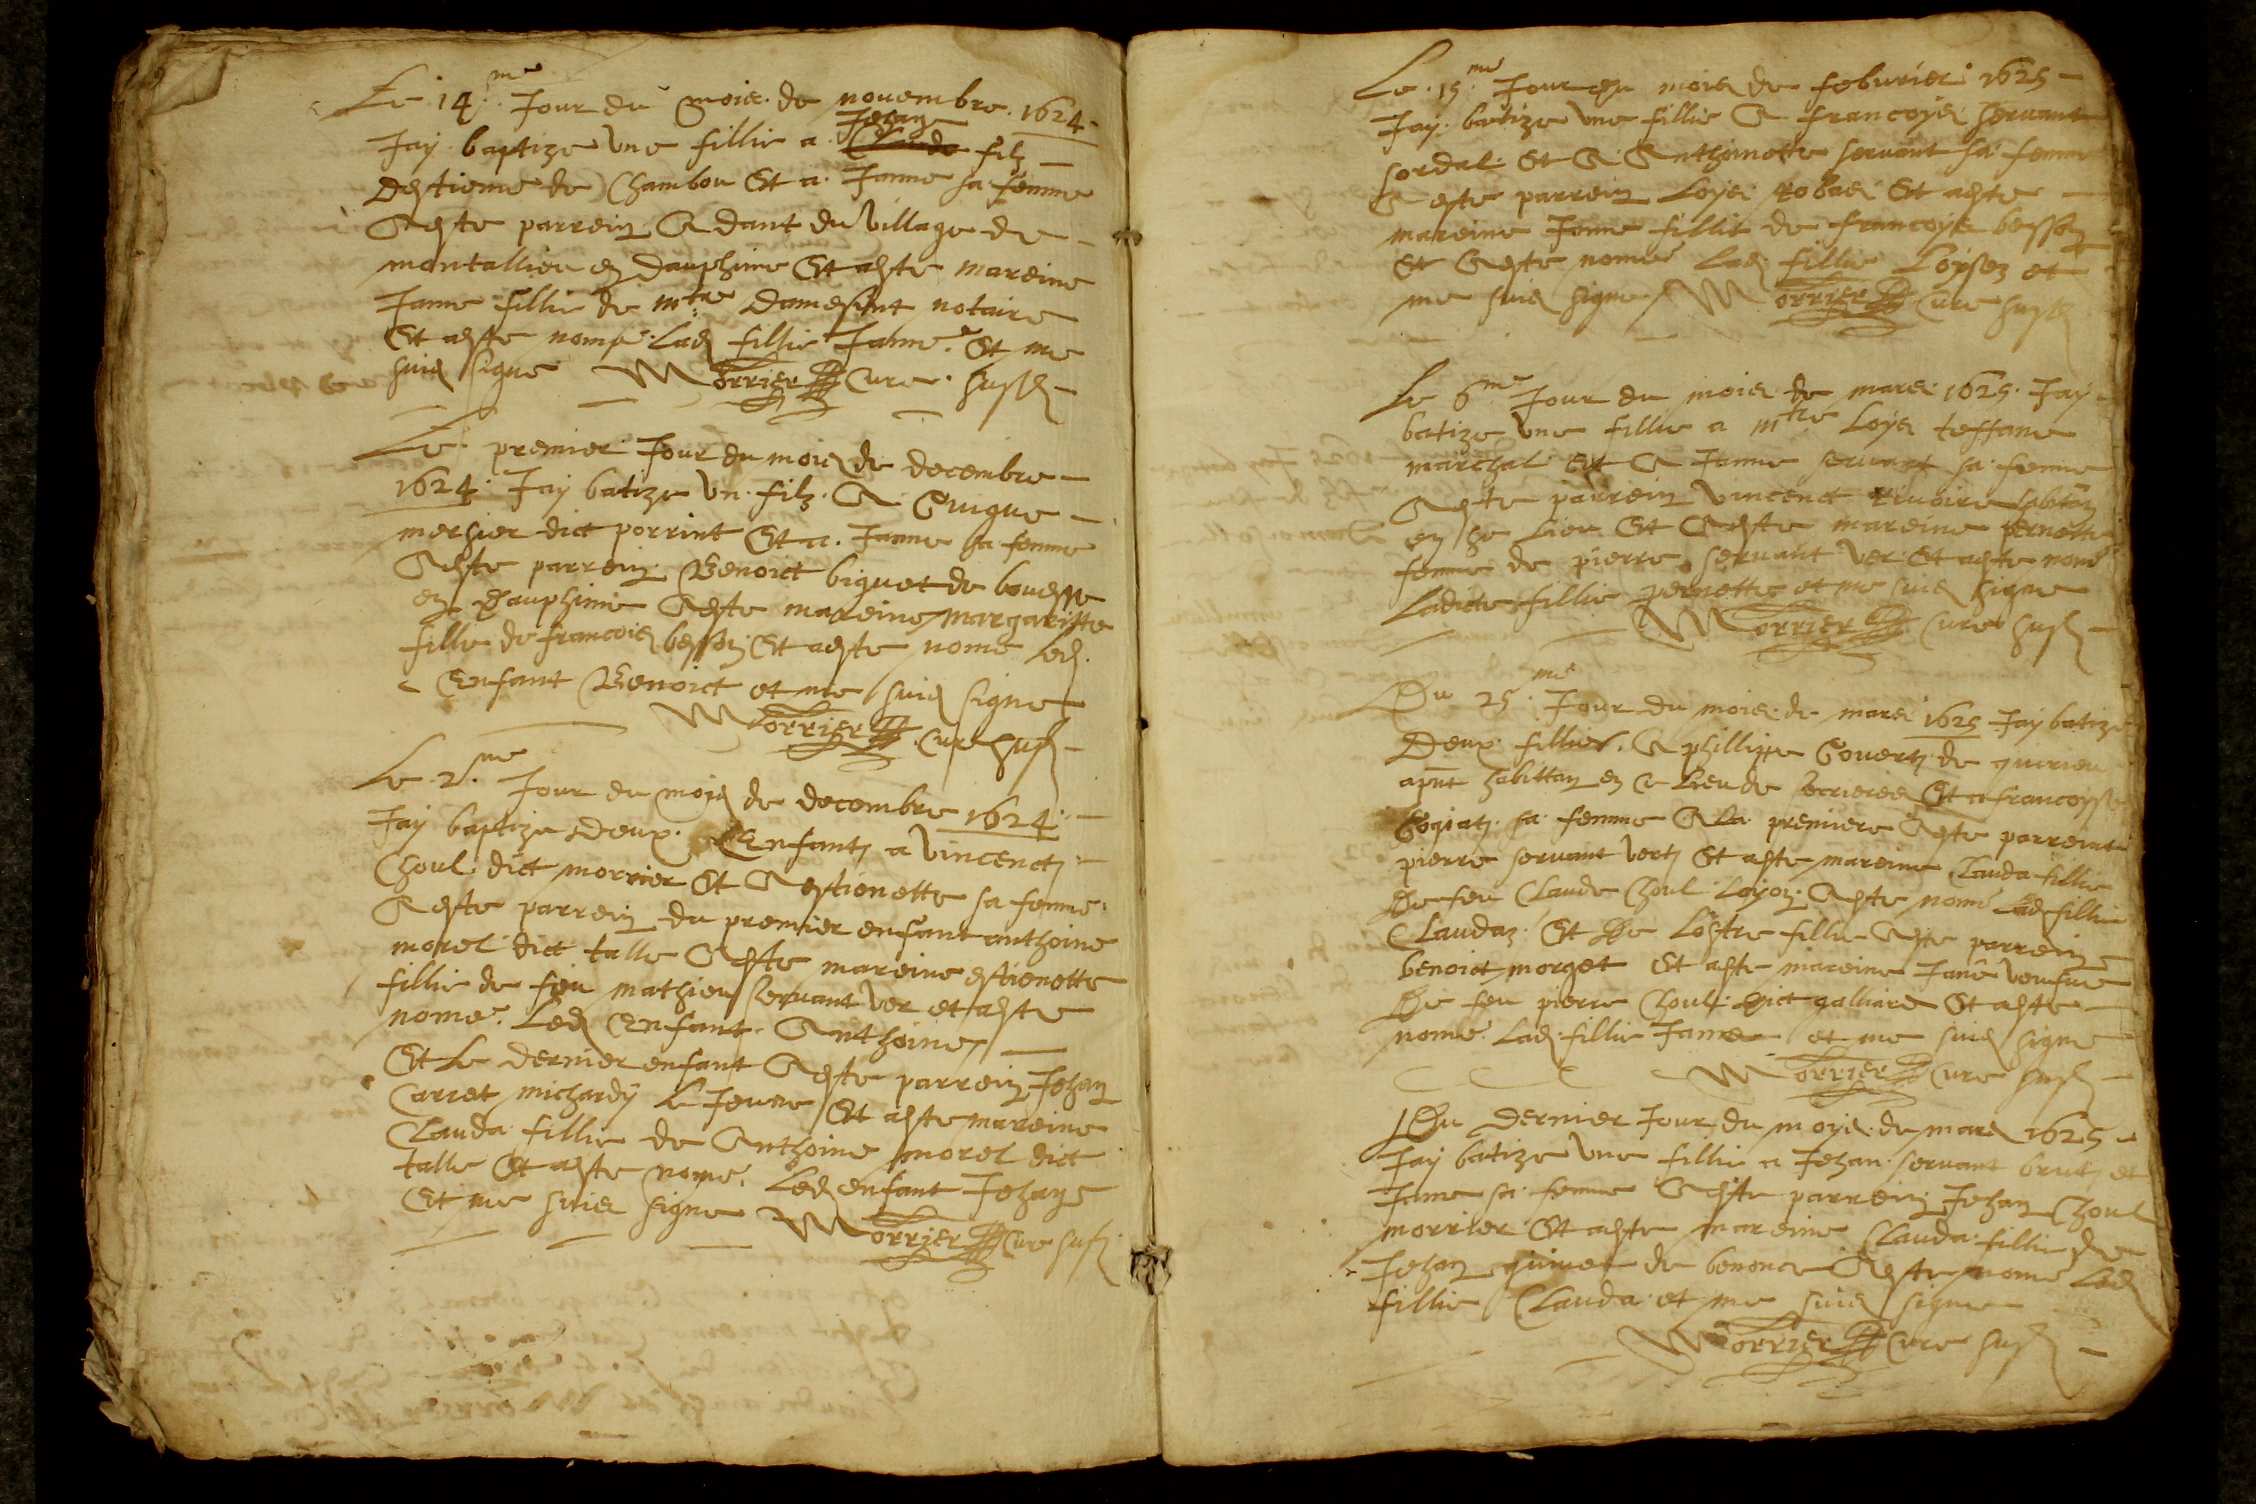 Le 14.me Jour du mois de novembre 1624
Jay baptize une fillie a Jehan filz
destienne de Chambou Et a Janne sa femme
A este parrein Adant du village de
montallieu en dauphine Et a este mareine
Janne fillie de mtre Damesint notaire
Et a este nome lad fillie Janne Et me
suis signe Morrier Cure susd
Le premier Jour du mois de decembre
1624 Jay batize un filz A Guigue
mersier dict porrint Et a Janne sa femme
A este parrein Benoict biguet de bouesse
en dauphine A este mareine Margaritte
fille de francois besson Et a este nome led
Enfant Benoict et me suis signe
Morrier Cure susd
Le 2.me Jour du mois de decembre 1624
Jay baptize deux Enfant a Vincenct
Choul dict morrier Et A estienette sa femme
A este parrein du premier enfant anthoine
morel dict talle A este mareine estienette
fillie de feu mathieu servant ver et a este
nome Led Enfant Anthoine
Et Le dernier enfant A este parrein Jehan
Carret michardy le Jeune Et a este mareine
Clauda fillie de Anthoine morel dict
talle Et a este nome Led enfant Jehan
Et me suis signe Morrier Cure susd
Le 15.me Jour du mois de febvrier 1625
Jay batize une fillie A francoys servant
sordal Et A Anthoinette servant sa femme
A este parrein Loys Et a este
mareine Janne fillie de francoys besson
Et A este nome Lad fillie Loyse et
me suis signe Morrier Cure susd
Le 6me Jour du mois de mars 1625 Jay
batize une fillie a mtre Loys teffane
marchal Et A Janne servant sa femme
A este parrein Vincenct Rivoire habitan
en se lieu Et A este mareine pernette
femme de pierre servant ver Et a este nome
Ladicte fillie pernette et me suis signe
Morrier Cure susd
Du 25.me Jour du mois de mars 1625 Jay batize
Deux fillies A phillippe Govert de quirieu
apnt habittan en ce Lieu de serrieres Et a francoyse
sa femme A La premiere A este parreint
pierre servant vert Et a este mareine Clauda fillie
De feu Claude Choul Loyon A este nome Lad fillie
Claudaz Et De Lostre fillie A este parrein
benoict morget Et a este mareine Jane veufve
De feu pierre Choul dict galliare Et a este
nome Lad fillie Janne et me suis signe
Morrier Cure susd
Du dernier Jour du moys de mars 1625
Jay batize une fillie a Jehan servant brut et
Janne sa femme A este parrein Jehan Choul
morrier Et a este mareine Clauda fillie de
Jehan quinet de benonce A este nome Lad
fillie Clauda et me suis signe
Morrier Cure susd